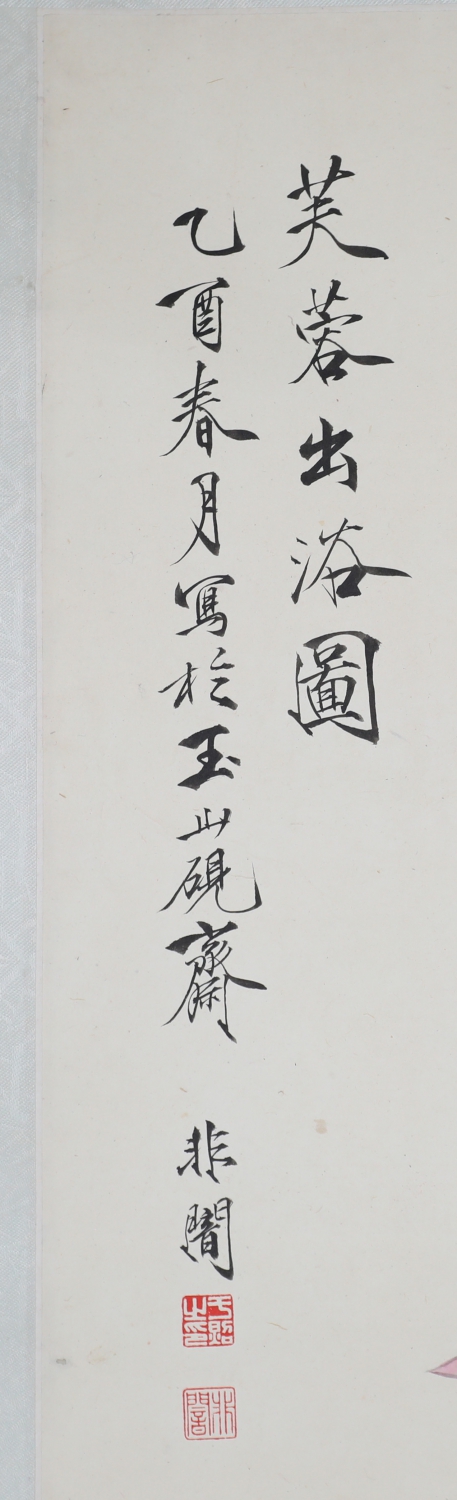 芙蓉出浴圖
乙酉春月寫於玉山硯齋
非闇
于照之印
非闇